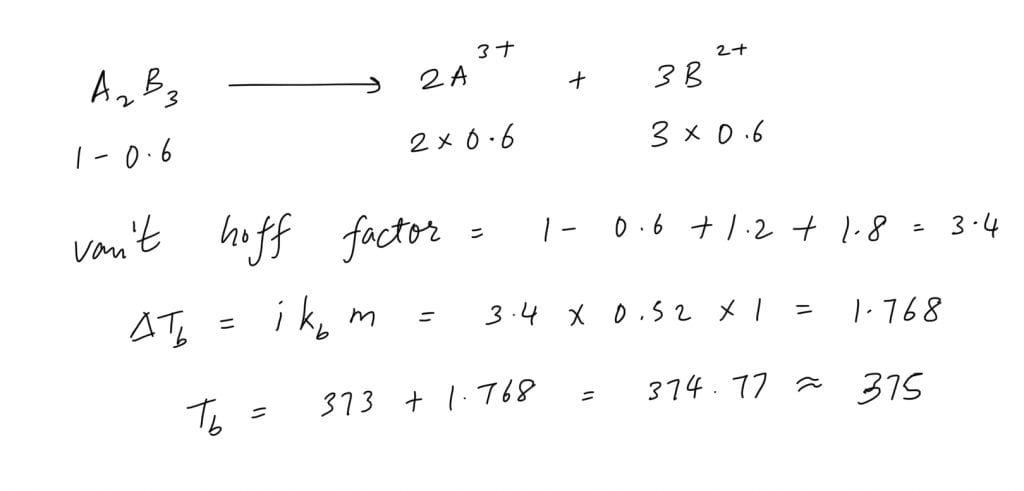 A₂B₃ ⟶ 2A³⁺ + 3B²⁺
1 - 0.6 2 × 0.6 3 × 0.6
van't hoff factor = 1 - 0.6 + 1.2 + 1.8 = 3.4
ΔT_b = i k_b m = 3.4 × 0.52 × 1 = 1.768
T_b = 373 + 1.768 = 374.77 ≈ 375